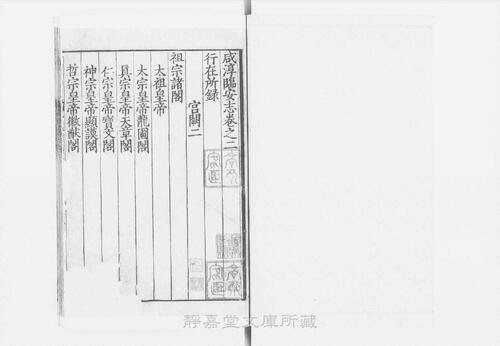 咸淳臨安志卷之二
行在所錄
宮闕二
祖宗諸閣
太祖皇帝
太宗皇帝龍圖閣
真宗皇帝天章閣
仁宗皇帝寶文閣
神宗皇帝顯謨閣
哲宗皇帝徽猷閣
靜嘉堂文庫所藏